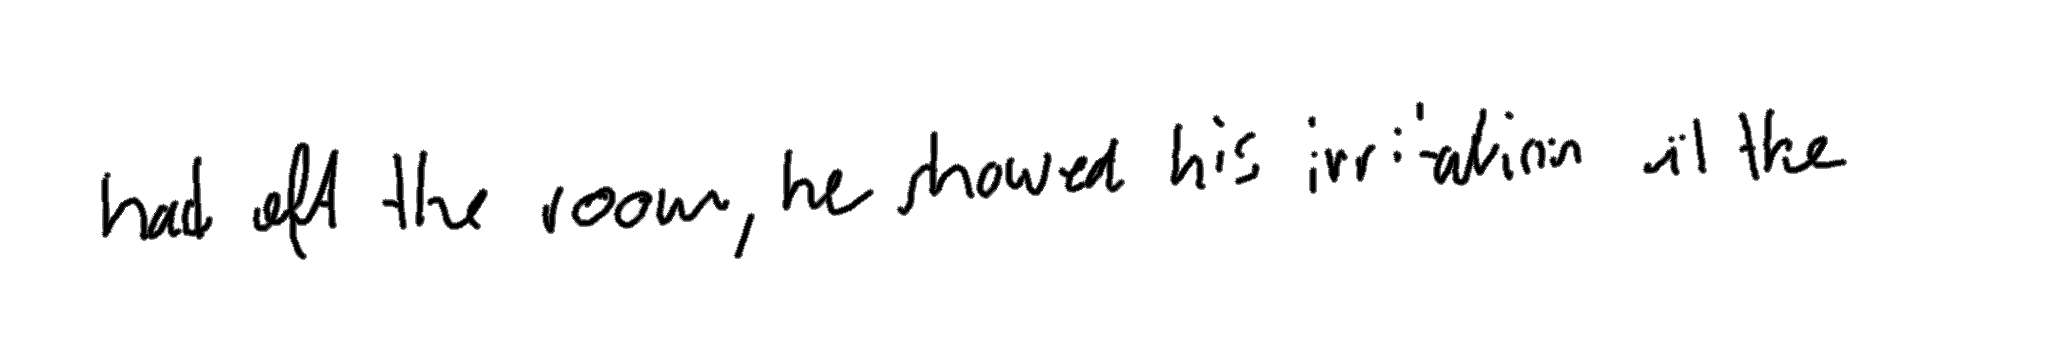 had left the room, he showed his irritation at the